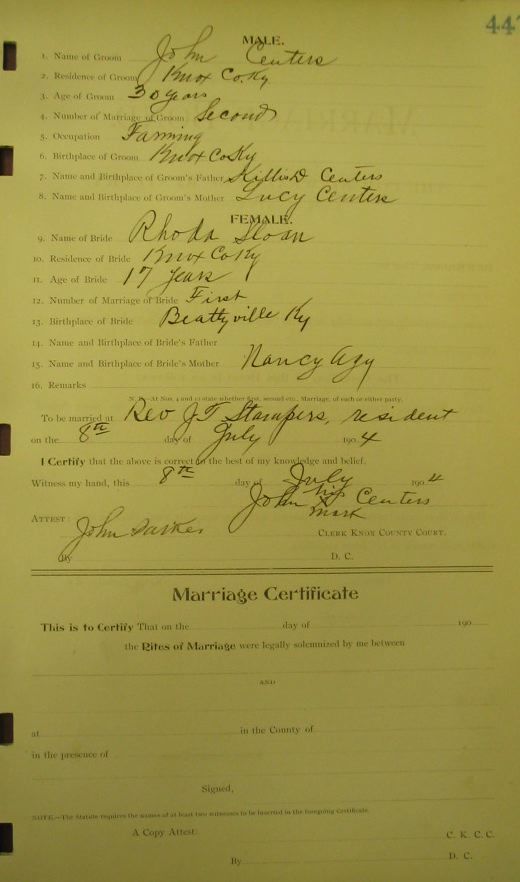 447
MALE.
1. Name of Groom John Centers
2. Residence of Groom Knox Co. Ky
3. Age of Groom 30 years
4. Number of Marriage of Groom Second
5. Occupation Farming
6. Birthplace of Groom Knox Co Ky
7. Name and Birthplace of Groom's Father Centers
8. Name and Birthplace of Groom's Mother Lucy Centers
FEMALE.
9. Name of Bride Rhoda Sloan
10. Residence of Bride Knox Co Ky
11. Age of Bride 17 years
12. Number of Marriage of Bride First
13. Birthplace of Bride Beattyville Ky
14. Name and Birthplace of Bride's Father
15. Name and Birthplace of Bride's Mother Nancy Agy
16. Remarks
N. B.—At Nos. 4 and 12 state whether first, second etc., Marriage, of each or either party.
To be married at Rev J T Stampers, resident
on the 8th day of July 1904
I Certify that the above is correct to the best of my knowledge and belief.
Witness my hand, this 8th day of July 1904
John his X mark Centers
ATTEST: John
CLERK KNOX COUNTY COURT.
By D. C.
Marriage Certificate
This is to Certify That on the day of 190
the Rites of Marriage were legally solemnized by me between
AND
at in the County of
in the presence of
Signed,
NOTE.—The Statute requires the names of at least two witnesses to be inserted in the foregoing Certificate.
A Copy Attest: C. K. C. C.
By D. C.